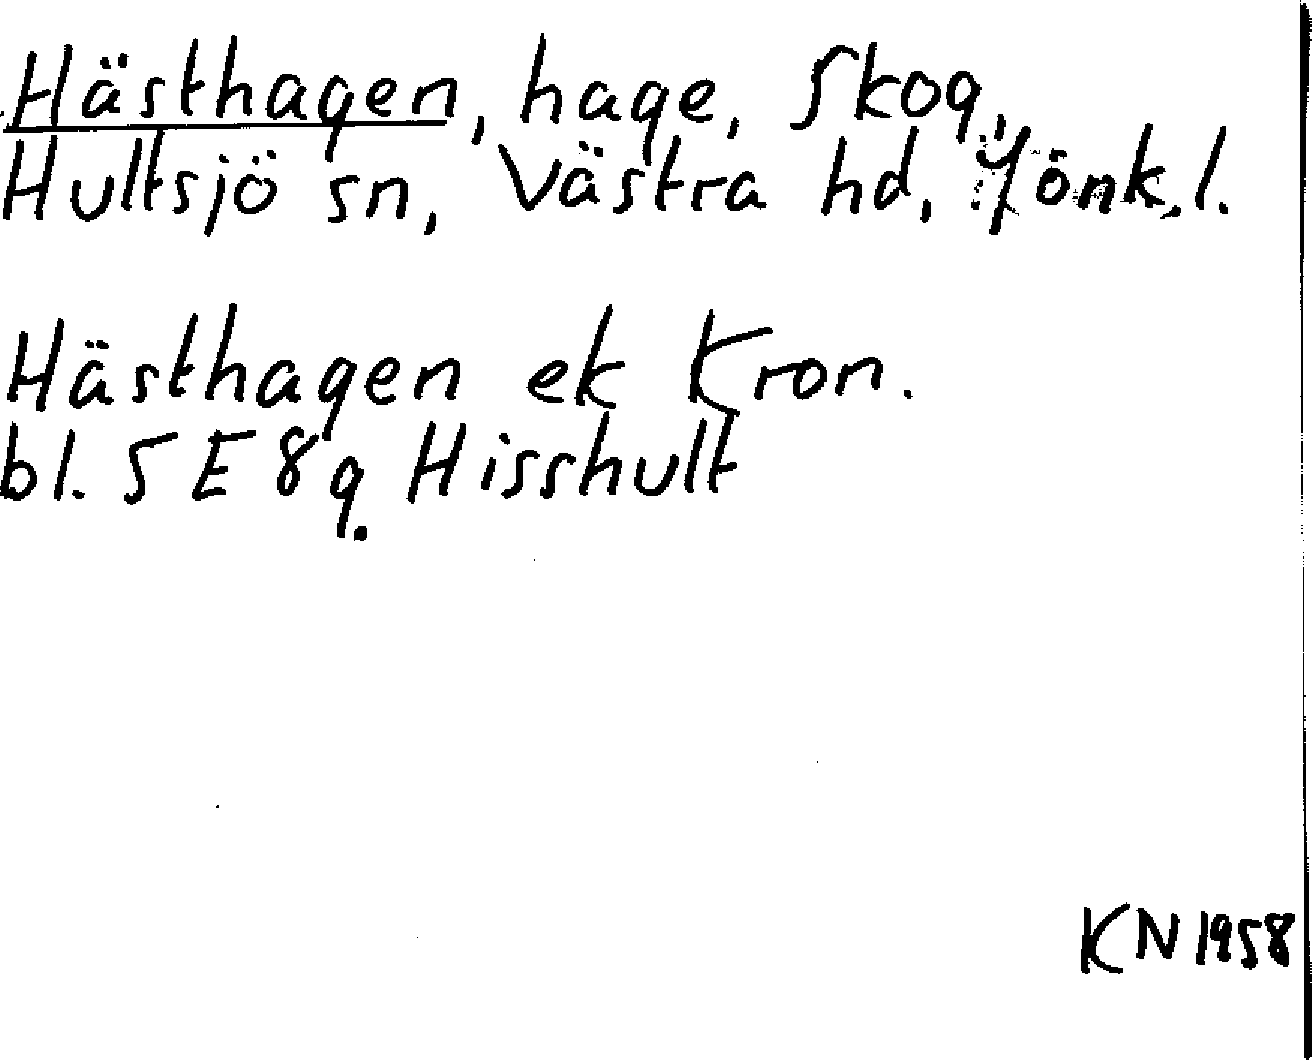 Hästhagen, hage, Skog,
Hultsjö sn, Västra hd, Jönk.l.
Hästhagen ek Kron.
bl. 5 E 8 g. Hisshult
KN 1958